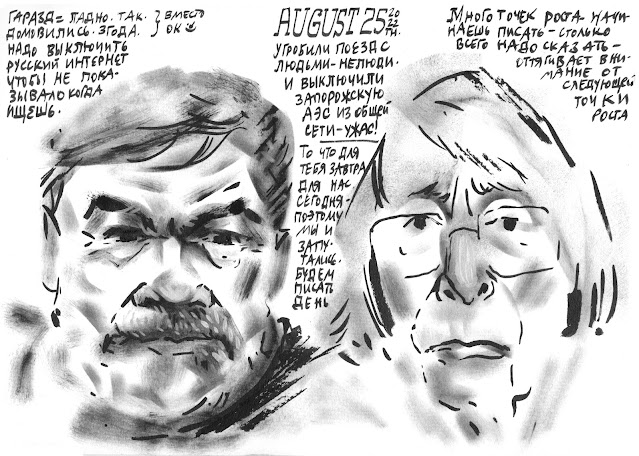 ГАРАЗД = ЛАДНО. ТАК.
ДОМОВИЛИСЬ. ЗГОДА.
} ВМЕСТО
ОК
НАДО ВЫКЛЮЧИТЬ
РУССКИЙ ИНТЕРНЕТ
ЧТОБЫ НЕ ПОКА-
ЗЫВАЛО КОГДА
ИЩЕШЬ.
AUGUST 25 2022
ПН.
УГРОБИЛИ ПОЕЗД С
ЛЮДЬМИ-НЕЛЮДИ.
И ВЫКЛЮЧИЛИ
ЗАПОРОЖСКУЮ
АЭС ИЗ ОБЩЕЙ
СЕТИ-УЖАС!
ТО ЧТО ДЛЯ
ТЕБЯ ЗАВТРА
ДЛЯ НАС
СЕГОДНЯ-
ПОЭТОМУ
МЫ И
ЗАПУ-
ТАЛИСЬ.
БУДЕМ
ПИСАТЬ
ДЕНЬ
МНОГО ТОЧЕК РОСТА- НАЧИ-
НАЕШЬ ПИСАТЬ - СТОЛЬКО
ВСЕГО НАДО СКАЗАТЬ-
ОТТЯГИВАЕТ ВНИ-
МАНИЕ ОТ
СЛЕДУЮЩЕЙ
ТОЧКИ
РОСТА